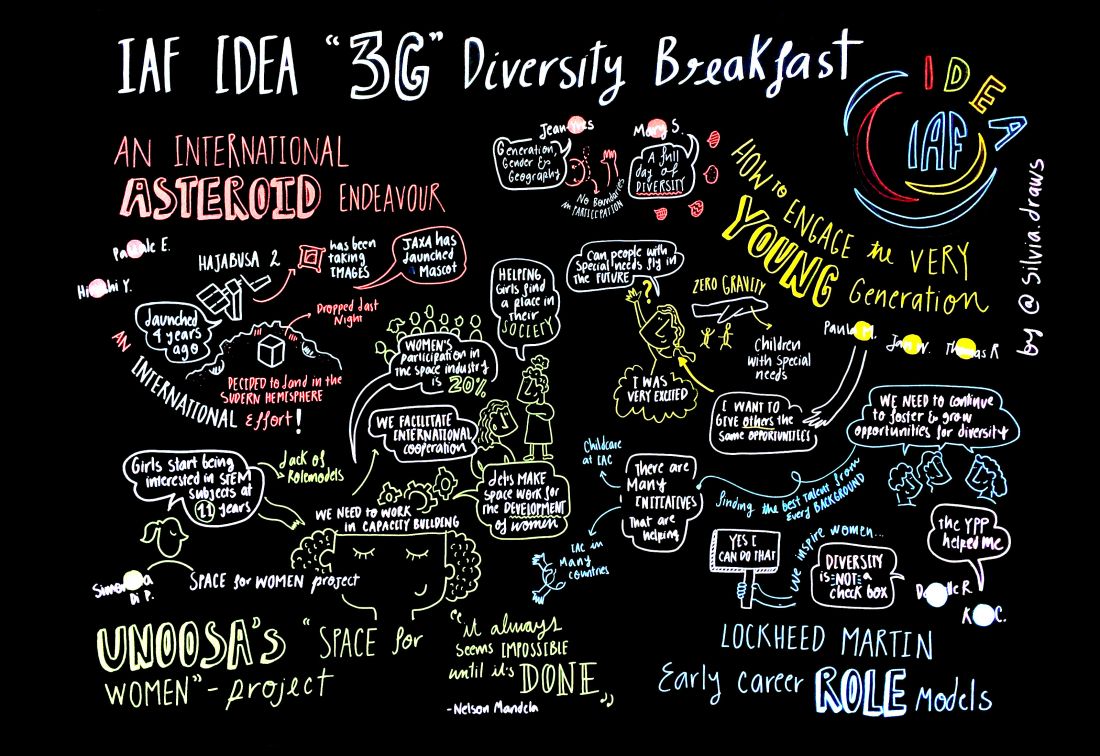 IAF IDEA "3G" Diversity Breakfast
IDEA
IAF
by @silvia.draws
Mary S.
Generation,
Gender &
Geography
No Boundaries
in PARTICIPATION
A full
day of
DIVERSITY
AN INTERNATIONAL
ASTEROID ENDEAVOUR
HAJABUSA 2
has been
taking
IMAGES
JAXA has
launched
Mascot
launched
4 years
ago
Dropped last
Night
DECIDED to land in the
SUDERN HEMISPHERE
AN
INTERNATIONAL
Effort!
HOW to
ENGAGE the VERY
YOUNG Generation
Can people with
special needs fly in
the FUTURE
?
ZERO GRAVITY
Children
with special
needs
I WAS
VERY EXCITED
I WANT TO
GIVE others the
SAME OPPORTUNITIES
HELPING
Girls find
a place in
their
SOCIETY
WOMEN'S
participation in
the space industry
is 20%
WE FACILITATE
INTERNATIONAL
cooperation
Girls start being
interested in STEM
subjects at
11 years
lack of
Rolemodels
WE NEED TO WORK
in CAPACITY BUILDING
Let's MAKE
space work for
the DEVELOPMENT
of women
Di P.
SPACE for WOMEN project
UNOOSA's "SPACE for
WOMEN" - project
"it always
seems IMPOSSIBLE
until it's
DONE"
- Nelson Mandela
WE NEED TO continue
to foster & grow
opportunities for diversity
Childcare
at IAC
There are
Many
INITIATIVES
That are
helping
finding the best talent from
every BACKGROUND
IAC in
Many
countries
YES I
CAN DO THAT
we inspire women...
DIVERSITY
is NOT a
check box
the YPP
helped me
LOCKHEED MARTIN
Early career ROLE Models